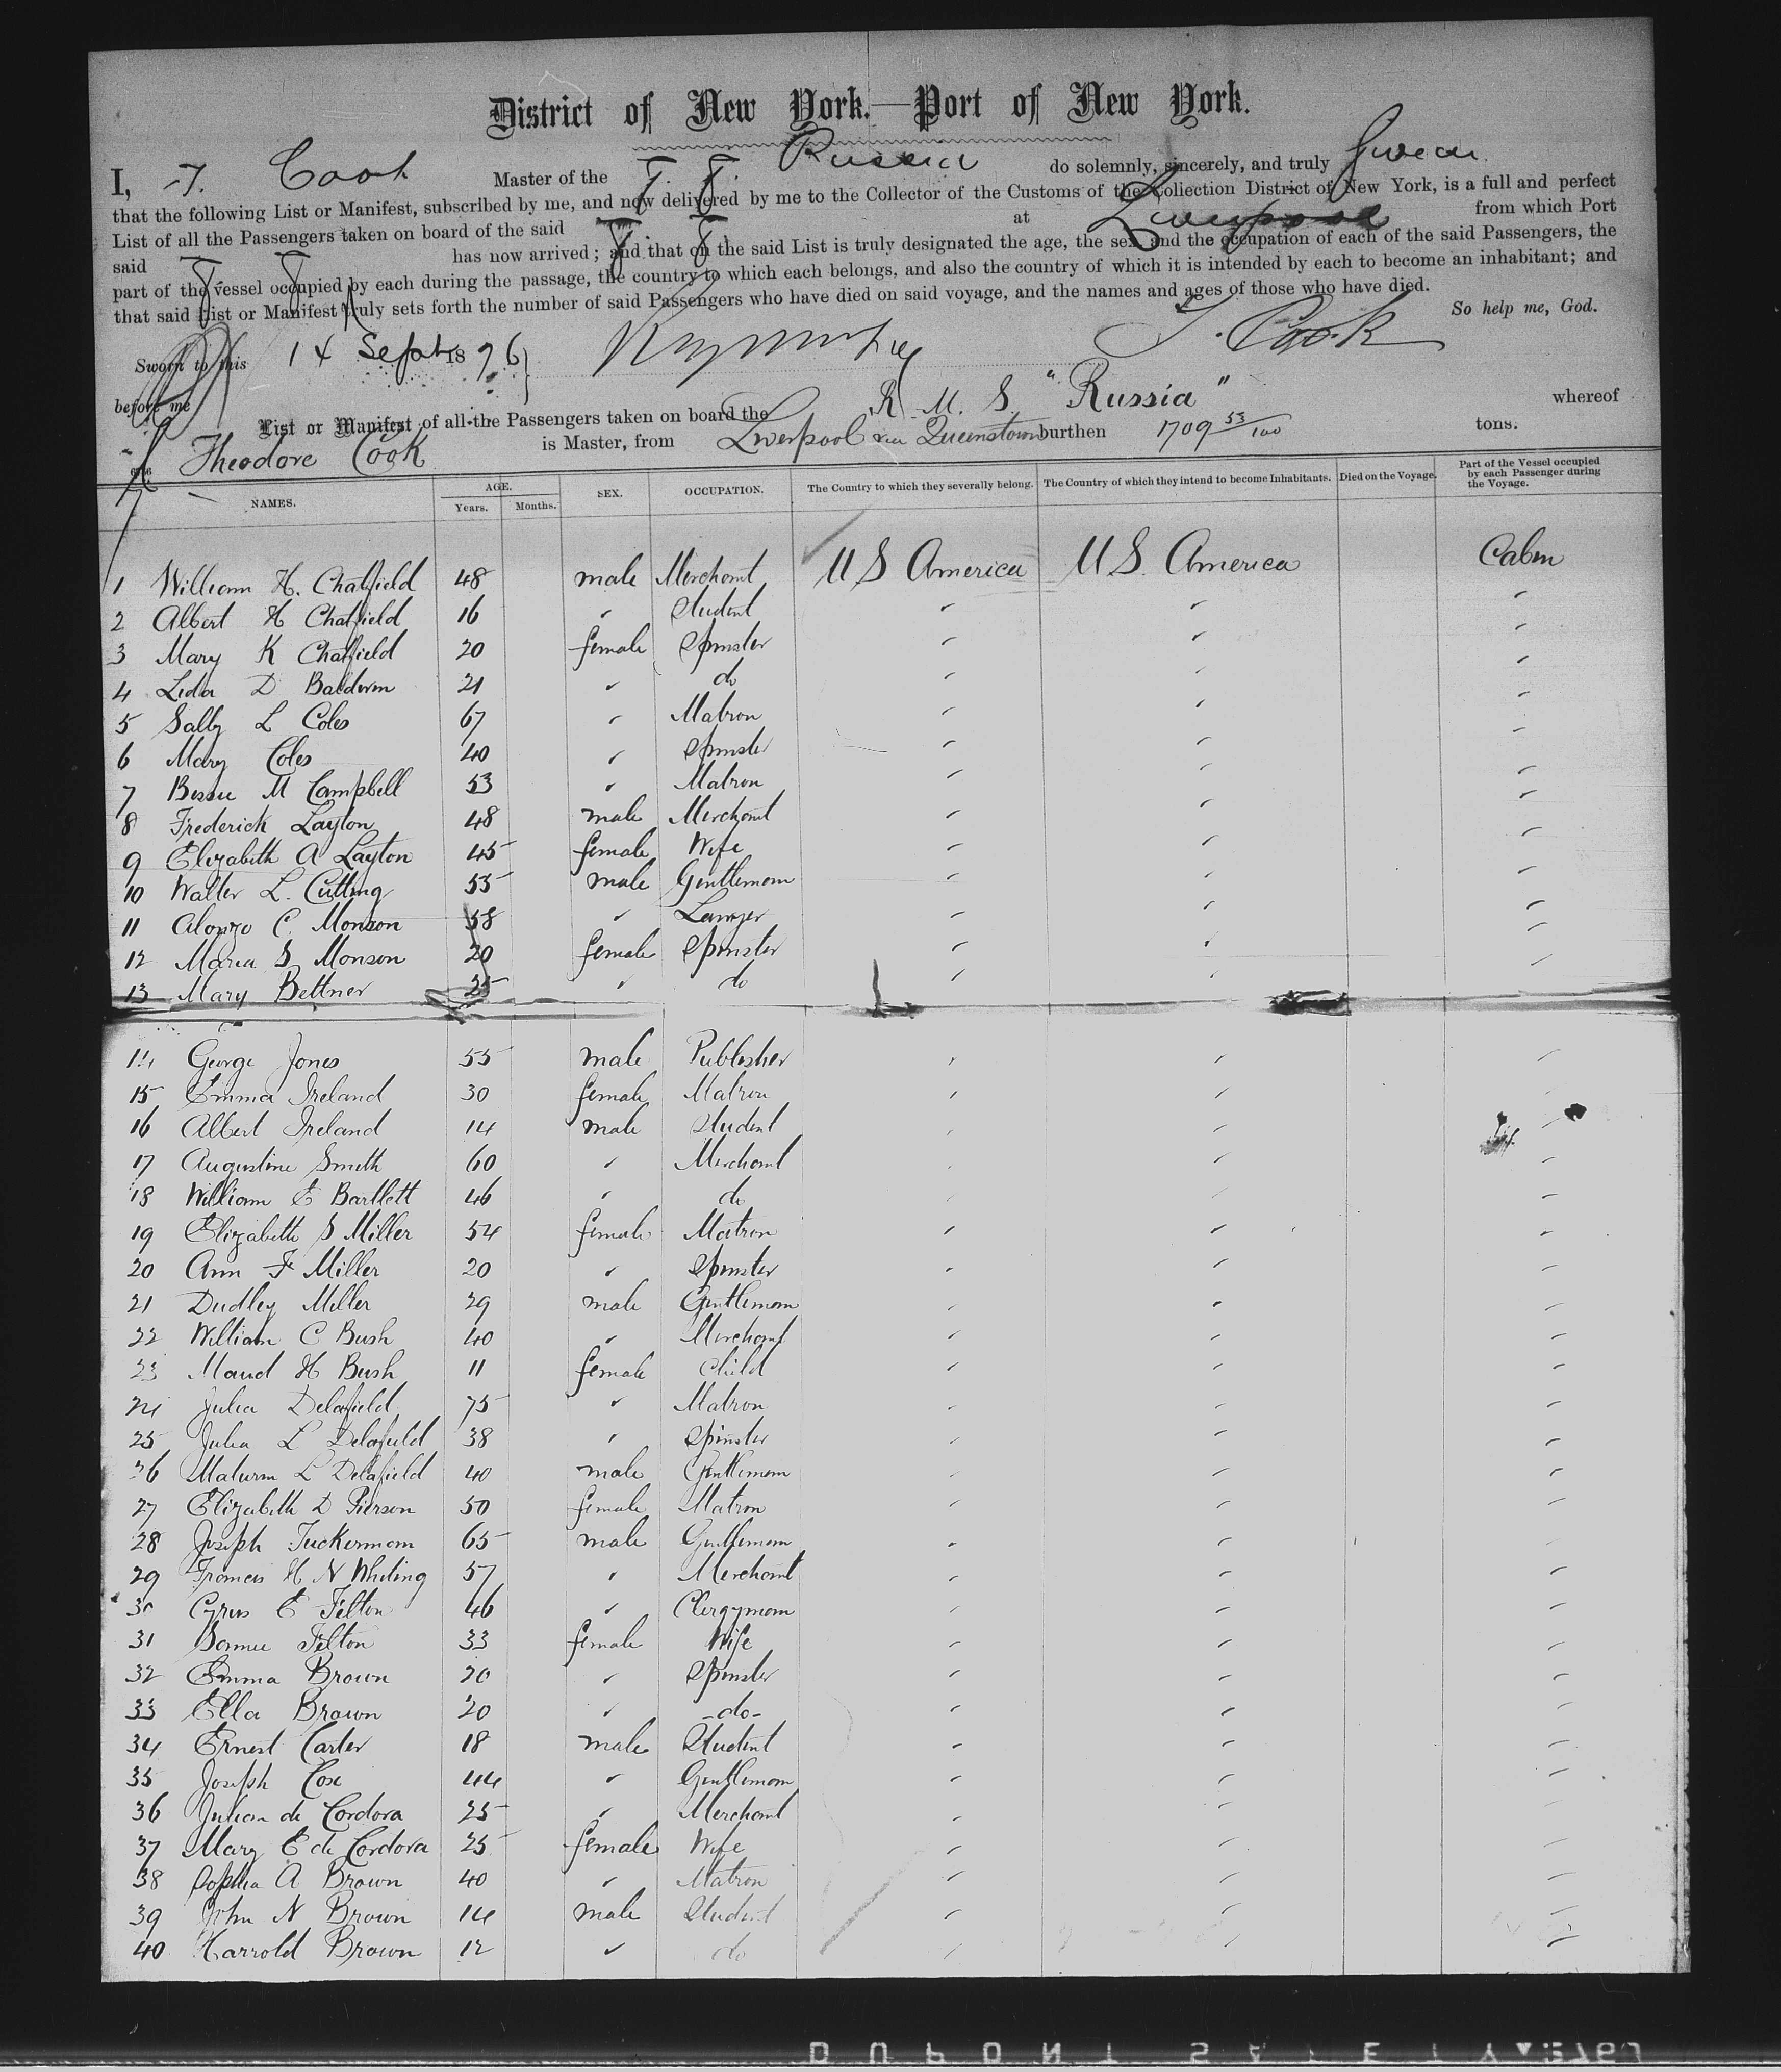 District of New York.—Port of New York.
I, T. Cook Master of the S. S. Russia do solemnly, sincerely, and truly swear
that the following List or Manifest, subscribed by me, and now delivered by me to the Collector of the Customs of the Collection District of New York, is a full and perfect
List of all the Passengers taken on board of the said S. S. at Liverpool from which Port
said S. S. has now arrived; and that on the said List is truly designated the age, the sex and the occupation of each of the said Passengers, the
part of the vessel occupied by each during the passage, the country to which each belongs, and also the country of which it is intended by each to become an inhabitant; and
that said List or Manifest truly sets forth the number of said Passengers who have died on said voyage, and the names and ages of those who have died.
So help me, God.
Sworn to this 14 Sept 1876 T. Cook
before me
List or Manifest of all the Passengers taken on board the R. M. S. "Russia" whereof
Theodore Cook is Master, from Liverpool via Queenstown burthen 1709 53/100 tons.
NAMES. AGE. Years. Months. SEX. OCCUPATION. The Country to which they severally belong. The Country of which they intend to become Inhabitants. Died on the Voyage. Part of the Vessel occupied by each Passenger during the Voyage.
1 William H. Chatfield 48 male Merchant U S America U S. America Cabin
2 Albert H Chatfield 16 " Student " " "
3 Mary K Chatfield 20 female Spinster " " "
4 Lida D Baldwin 21 " do " " "
5 Sally L Coles 67 " Matron " " "
6 Mary Coles 40 " Spinster " " "
7 Bessie M Campbell 53 " Matron " " "
8 Frederick Layton 48 male Merchant " " "
9 Elizabeth A Layton 45 female Wife " " "
10 Walter L. Cutting 55 male Gentleman " " "
11 Alonzo C. Monson 58 " Lawyer " " "
12 Maria S Monson 20 female Spinster " " "
13 Mary Bettner 35 " do " " "
14 George Jones 55 male Publisher " " "
15 Emma Ireland 30 female Matron " " "
16 Albert Ireland 14 male Student " " "
17 Augustine Smith 60 " Merchant " " "
18 William E Bartlett 46 " do " " "
19 Elizabeth S Miller 54 female Matron " " "
20 Ann F Miller 20 " Spinster " " "
21 Dudley Miller 29 male Gentleman " " "
22 William C Bush 40 " Merchant " " "
23 Maud H Bush 11 female Child " " "
24 Julia Delafield 75 " Matron " " "
25 Julia L Delafield 38 " Spinster " " "
26 Maturin L Delafield 40 male Gentleman " " "
27 Elizabeth D Pierson 50 female Matron " " "
28 Joseph Tuckerman 65 male Gentleman " " "
29 Francis H N Whiting 57 " Merchant " " "
30 Cyrus E Felton 46 " Clergyman " " "
31 Felton 33 female Wife " " "
32 Emma Brown 20 " Spinster " " "
33 Ella Brown 20 " -do- " " "
34 Ernest Carter 18 male Student " " "
35 Joseph Cox 44 " Gentleman " " "
36 Julian de Cordova 25 " Merchant " " "
37 Mary E de Cordova 25 female Wife " " "
38 Sophia A Brown 40 " Matron " " "
39 John N Brown 14 male Student " " "
40 Harrold Brown 12 " do " " "